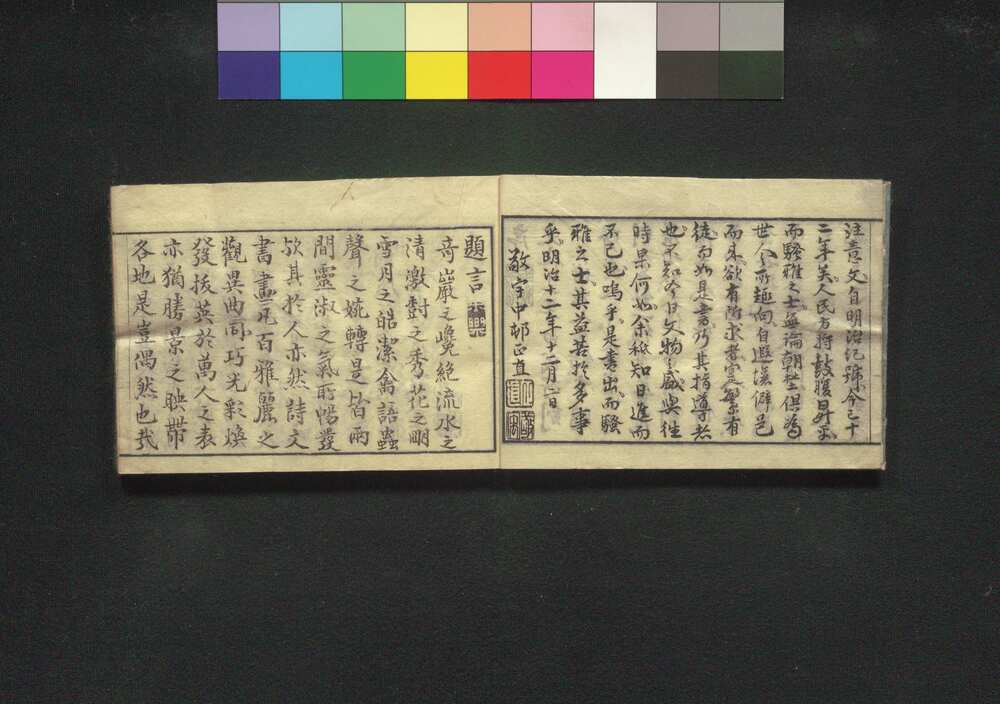 注意文自明治紀號今已十
二年矣人民方將鼓腹昇平
而騷雅之士無論朝野俱為
世人所趨向自遐壤僻邑
而來欲有所求者寔繁有
徒而如是書乃其指導者
也不知今日文物之盛與往
時果何如余秪知日進而
不已也嗚乎是書出而騷
雅之士其益苦於多事
乎明治十二年十二月二日
敬宇中邨正直
題言
奇巖之巉絶流水之
清激對之秀花之明
雪月之皓潔禽語蟲
聲之婉轉是皆兩
間靈淑之氣所暢發
於其於人亦然詩文
書畫凡百雅麗之
觀異曲同巧光彩煥
發拔英於萬人之表
亦猶勝景之映帶
各地是豈偶然也哉